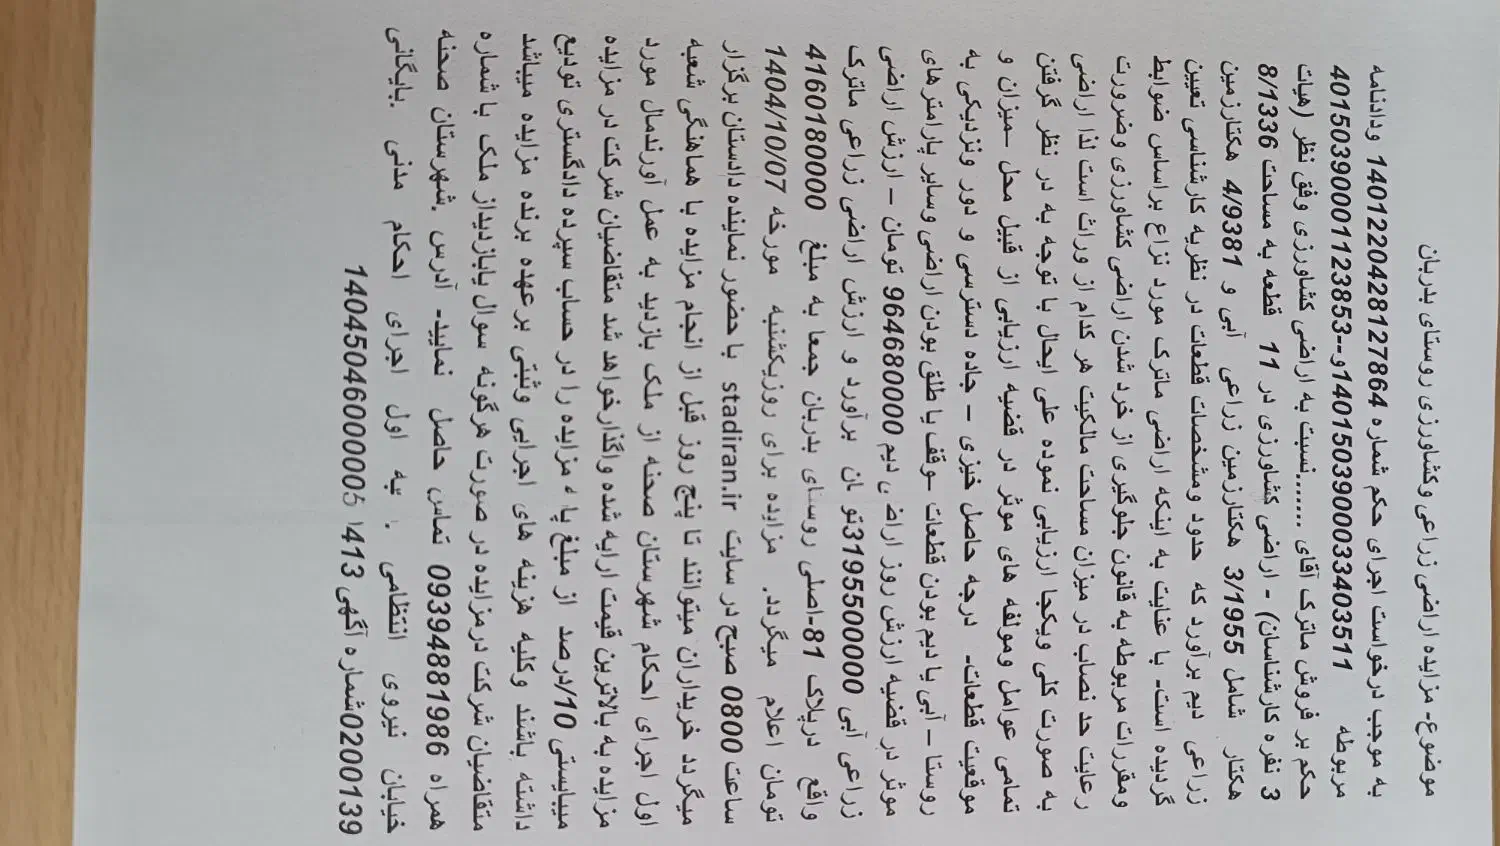 موضوع- مزایده اراضی زراعی وکشاورزی روستای بدربان
به موجب درخواست اجرای حکم شماره 140122042812127864 ودادنامه
401503900011123853--و140150390003403511 مربوطه
حکم بر فروش ماترک آقای .......نسبت به اراضی کشاورزی وفق نظر (هیات
3 نفره کارشناسان) - اراضی کشاورزی در 11 قطعه به مساحت 8/1336
هکتار شامل 3/1955 هکتارزمین زراعی آبی و 4/9381 هکتارزمین
زراعی دیم برآورد که حدود ومشخصات قطعات در نظریه کارشناسی تعیین
گردیده است- با عنایت به اینکه اراضی ماترک مورد نزاع براساس ضوابط
ومقررات مربوطه به قانون جلوگیری از خرد شدن اراضی کشاورزی وضرورت
رعایت حد نصاب در میزان مساحت مالکیت هر کدام از وراث است لذا اراضی
به صورت کلی ویکجا ارزیابی نموده علی ایحال با توجه به در نظر گرفتن
تمامی عوامل ومولفه های موثر در قضیه ارزیابی از قبیل محل –میزان و
موقعیت قطعات- درجه حاصل خیزی – جاده دسترسی و دور ونزدیکی به
روستا – آبی یا دیم بودن قطعات –وقف یا طلق بودن اراضی وسایر پارامتر های
موثر در قضیه ارزش روز اراضی دیم 964680000 تومان – ارزش اراضی
زراعی آبی 3195500000تومان برآورد و ارزش اراضی زراعی ماترک
واقع درپلاک 81-اصلی روستای بدربان جمعا به مبلغ 4160180000
تومان اعلام میگردد. مزایده برای روزیکشنبه مورخه 1404/10/07
ساعت 0800 صبح در سایت stadiran.ir با حضور نماینده دادستان برگزار
میگردد خریداران میتوانند تا پنج روز قبل از انجام مزایده با هماهنگی شعبه
اول اجرای احکام شهرستان صحنه از ملک بازدید به عمل آورندمال مورد
مزایده به بالاترین قیمت ارایه شده واگذارخواهد شد متقاضیان شرکت در مزایده
میبایستی 10/درصد از مبلغ پایه مزایده را در حساب سپرده دادگستری تودیع
داشته باشند وکلیه هزینه های اجرایی وثبتی برعهده برنده مزایده میباشد
متقاضیان شرکت درمزایده در صورت هرگونه سوال یابازدیداز ملک با شماره
همراه 09394881986 تماس حاصل نمایید- آدرس .شهرستان صحنه
خیابان نیروی انتظامی . اول اجرای احکام مدنی بایگانی
0200139شماره آگهی 1404504600000051413